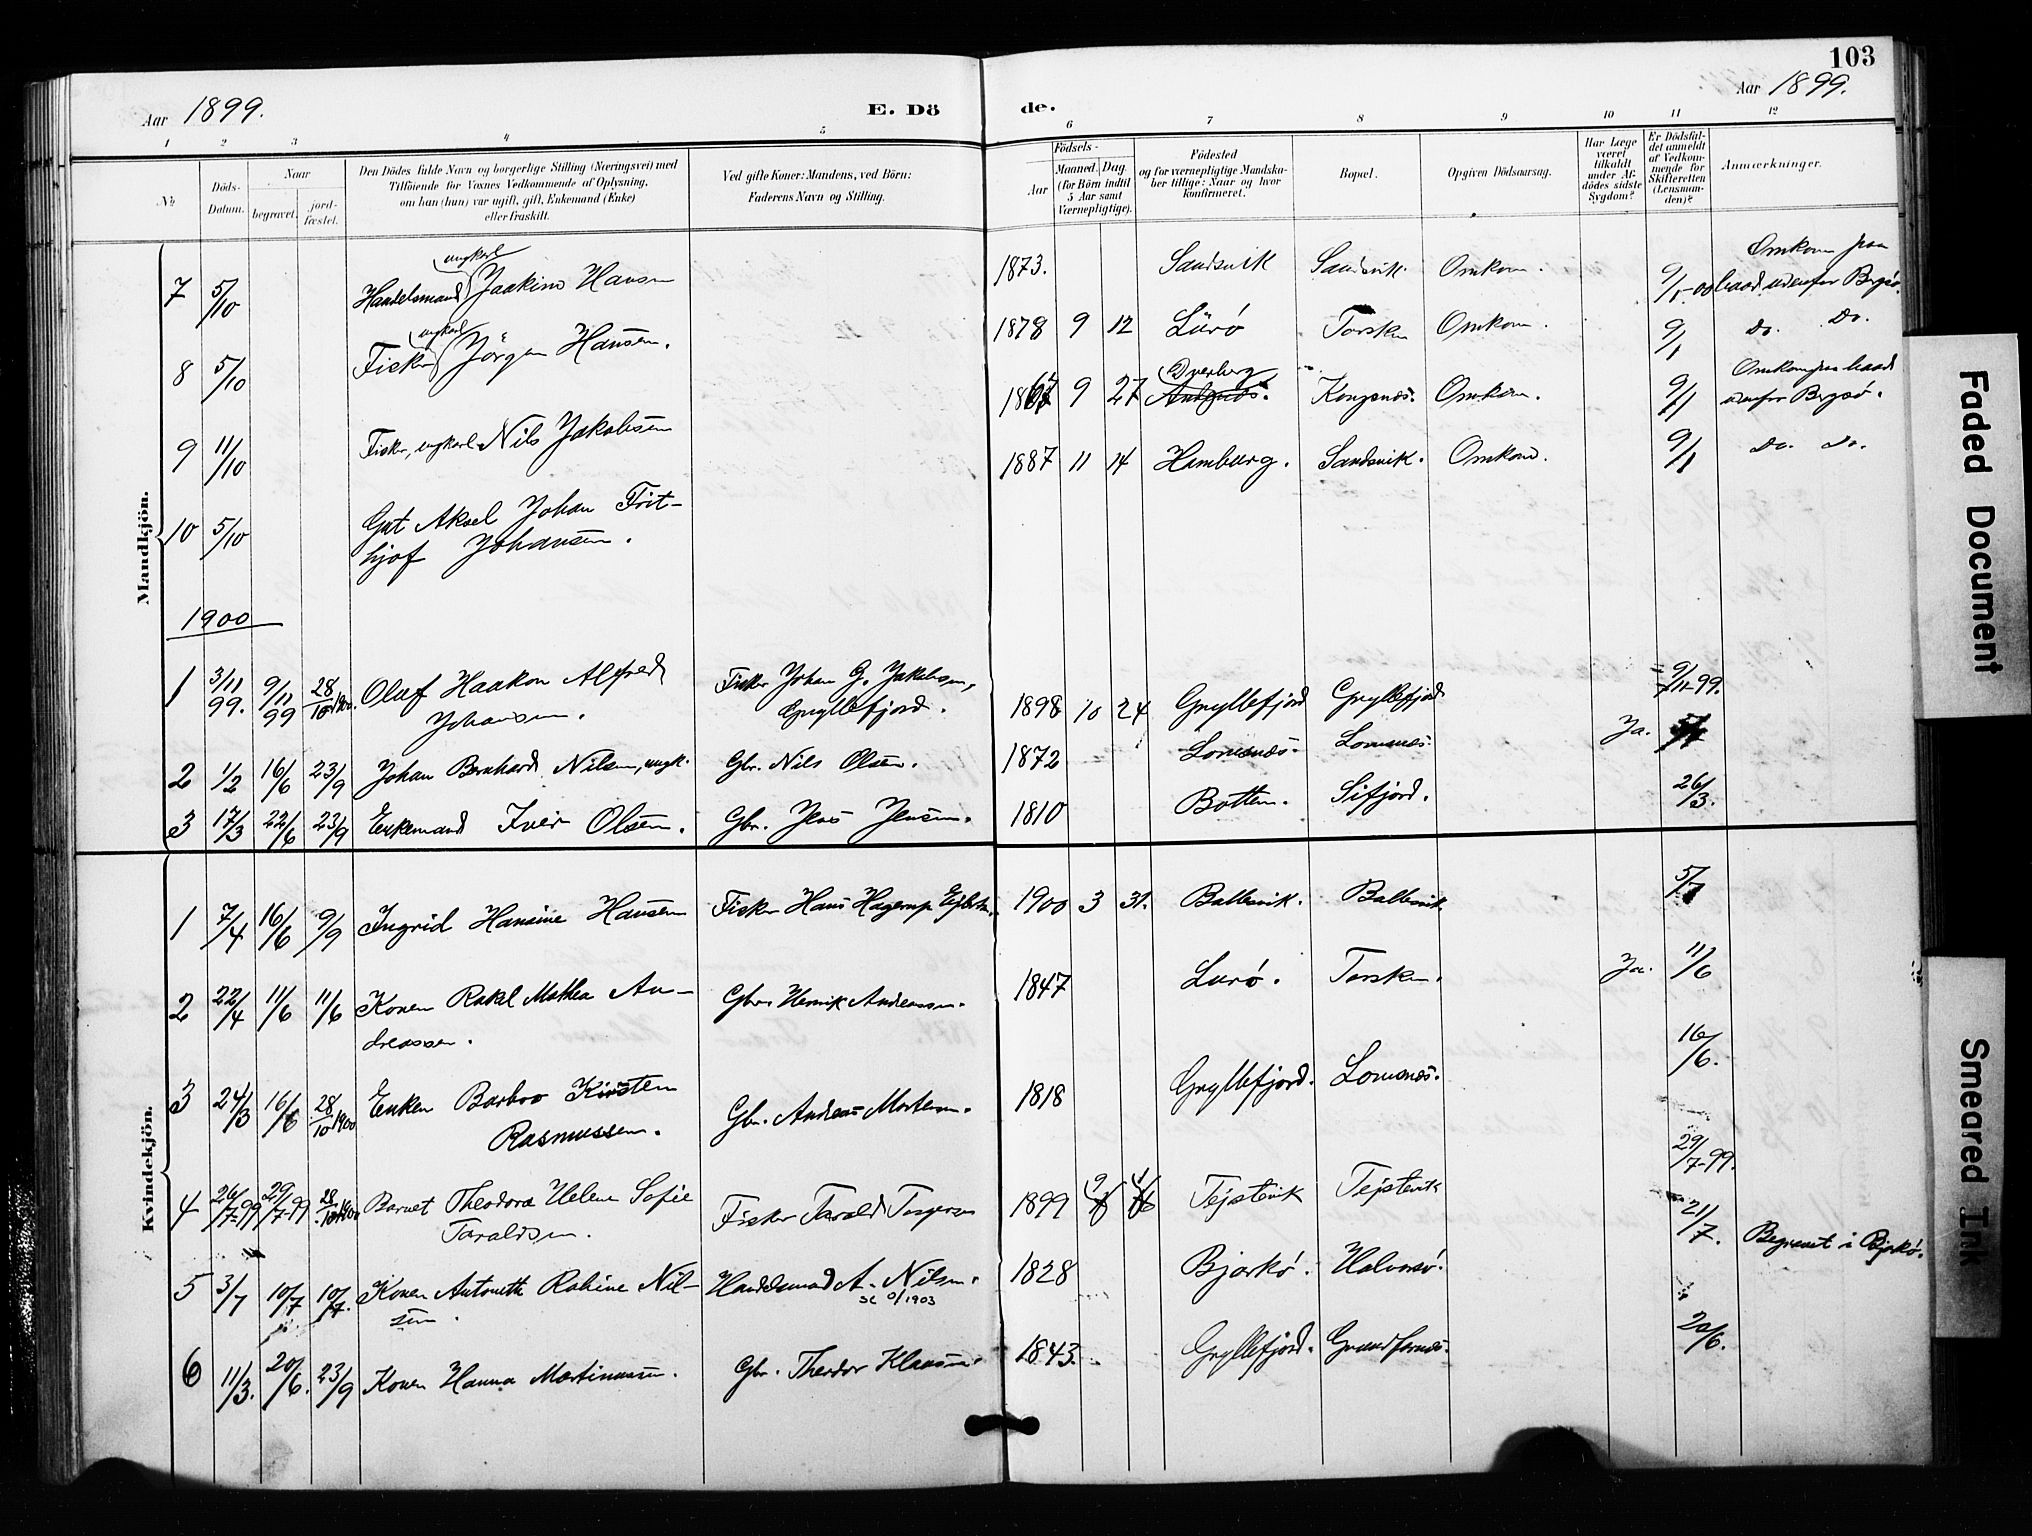 103
Aar 1899.
E. Dö
de.
Aar 1899.
1 2 3 4 5 6 7 8 9 10 11 12
№
Döds-
Datum.
Naar
begravet.
jord-
fæstet.
Den Dödes fulde Navn og borgerlige Stilling (Næringsvei) med
Tilföiende for Voxnes Vedkommende af Oplysning,
om han (hun) var ugift, gift, Enkemand (Enke)
eller fraskilt.
Ved gifte Koner: Mandens, ved Börn:
Faderens Navn og Stilling.
Födsels-
Aar
Maaned. Dag.
(for Börn indtil
5 Aar samt
Værnepligtige).
Födested
og for værnepligtige Mandska-
ber tillige: Naar og hvor
konfirmeret.
Bopæl.
Opgiven Dödsaarsag.
Har Læge
været
tilkaldt
under Af-
dödes sidste
Sygdom?
Er Dödsfal-
det anmeldt
af Vedkom-
mende for
Skifteretten
(Lensman-
den)?
Anmærkninger.
Mandkjön.
7 5/10 Handelsmand ungkarl Joakim Hansen 1873. Sandsvik Sandsvik. Omkom. 9/1-00 Omkom fra
baad udenfor Bergsö.
8 5/10 Fisker ungkarl Jörgen Hansen. 1878 9 12 Lurö Torsken Omkom. 9/1 Do. Do.
9 11/10 Fisker, ungkarl Nils Jakobsen 9 27 Dverberg Kongsnes. Omkom. 9/1 Omkom fra baad
udenfor Bergsö.
10 5/10 Gut Aksel Johan Frit-
hjof Johansen. 1887 11 14 Hamburg. Sandsvik. Omkom. 9/1 Do. Do.
1900
1 3/11 99. 9/11 99 28/10 1900. Olaf Haakon Alfred
Johansen. Fisker Johan G. Jakobsen,
Gryllefjord. 1898 10 24 Gryllefjord Gryllefjord 9/11-99.
2 1/2 16/6 23/9 Johan Bernhard Nilsen, ungk. Gbr. Nils Olsen. 1872 Lomsnes. Lomsnes. Ja.
3 17/3 22/6 23/9 Enkemand Iver Olsen. Gbr. Jens Jensen. 1810 Botten. Sifjord. 26/3.
Kvindekjön.
1 7/4 16/6 9/9 Ingrid Hansine Hansen Fisker Hans Hagerup 1900 3 31. Ballesvik. Ballesvik 5/7
2 22/4 11/6 11/6 Konen Rakel Mathea An-
dreassen. Gbr. Henrik Andreassen. 1847 Lurö. Torsken. Ja. 11/6
3 24/3 16/6 28/10 1900 Enken Barbro Kirsten
Rasmussen. Gbr. Andreas Mortensen. 1818 Gryllefjord. Lomsnes. 16/6.
4 26/7-99 29/7-99 28/10 1900 Barnet Theodora Helene Sofie
Taraldsen. Fisker Tarald Torgersen 1899 Tejstevik Tejstevik 29/7-99.
5 3/7 10/7 10/7. Konen Antonette Rakine Nil-
sen. Handelsmand A. Nilsen.
se 0/1903 1828 Bjarkö. Halvarsö. 21/7. Begravet i Bjarkö.
6 11/3. 20/6. 23/9 Konen Hanna Martinussen. Gbr. Theodor Klausen. 1843. Gryllefjord. Grundfarnes. 20/6.
Faded Document
Smeared Ink